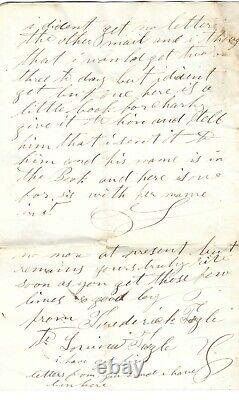 i dident get no letters
the other mail and i thought
that i wanto get two or
three to day but i dident
get but one here is a
little book for Charley
give it to him and tell
him that i sent it to
him and his name is in
the Book and here is
for with her name
in it
no more at present but
remains yours truly rite
soon as you get those few
lines good by
from Frederick Fogle
to Lovina Fogle
i have got
letters from you i have
here